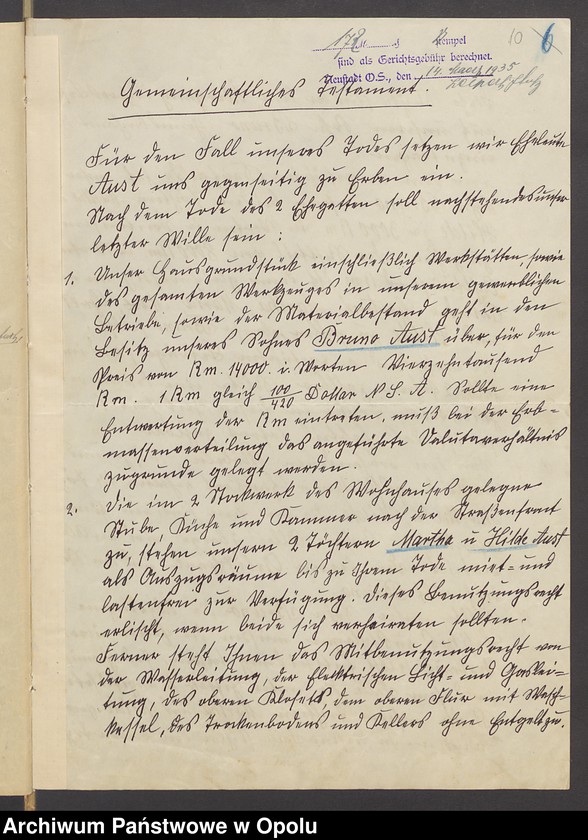 10 6
172 Stempel
sind als Gerichtsgebühr berechnet.
Neustadt O.S., den 14. 1935
Gemeinschaftliches Testament.
Für den Fall unseres Todes setzen wir Eheleute
Aust uns gegenseitig zu Erben ein.
Nach dem Tode des 2 Ehegatten soll nachstehendes unser
letzter Wille sein :
1. Unser Hausgrundstück einschließlich Werkstätten, sowie
des gesamten Werkzeuges in unserem gewerblichen
Betriebe, sowie der Materialbestand geht in den
Besitz unseres Sohnes Bruno Aust über, für den
Preis von Rm. 14000. i. Worten Vierzehntausend
Rm. 1 Rm gleich 100/420 Dollar N S. A. Sollte eine
Entwertung der Rm eintreten, muß bei der Erb-
massenverteilung das angeführte Valutaverhältnis
zugrunde gelegt werden.
2. Die im 2 Stockwerk des Wohnhauses gelegene
Stube, Küche und Kammer nach der Straßenfront
zu, stehen unsern 2 Töchtern Martha u Hilde Aust
als Auszugsräume bis zu Ihrem Tode miet- und
lastenfrei zur Verfügung. Dieses Benutzungsrecht
erlischt, wenn beide sich verheiraten sollten.
Ferner steht Ihnen das Mitbenutzungsrecht von
der Wasserleitung, der Elektrischen Licht- und Gaslei-
tung, des oberen Klosets, dem oberen Flur mit Wasch-
kessel, des Trockenbodens und Kellers ohne Entgelt zu.
Archiwum Państwowe w Opolu